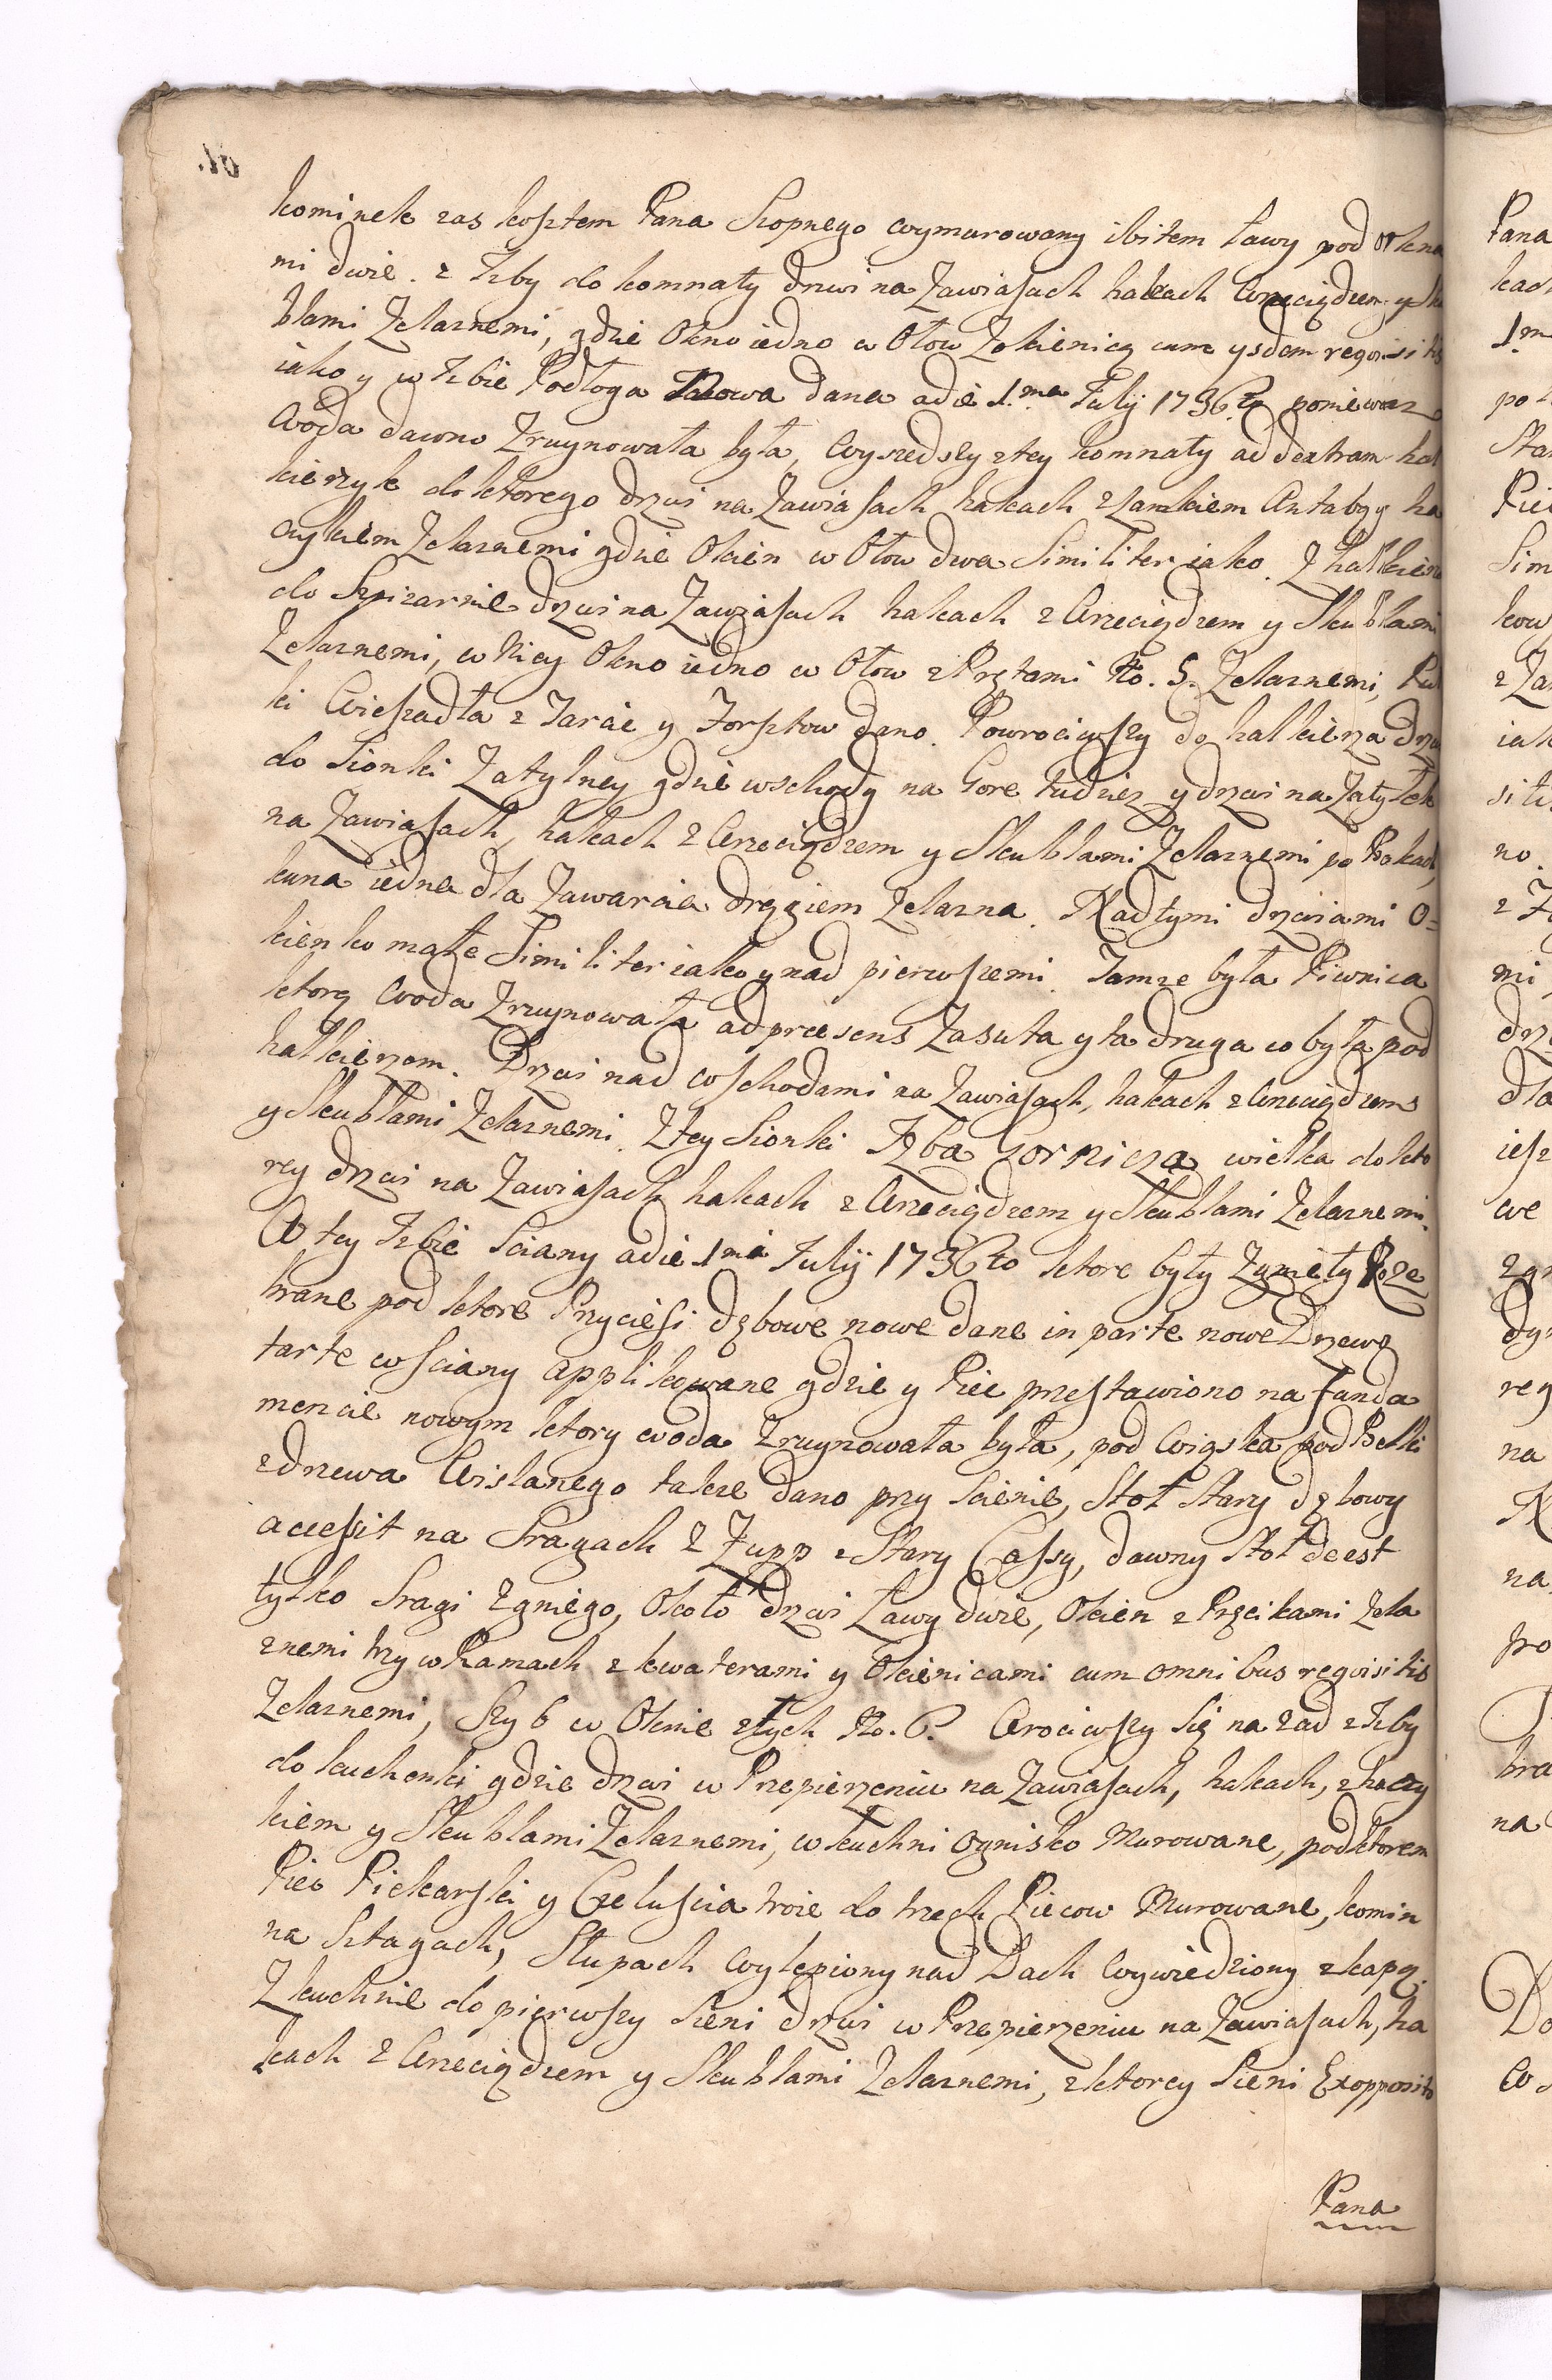 kominek zas kosztem Pana Szopnego wymurowany ibitem ławy pod okna
mi dwie. z Izby do komnaty drzwi na Zawiasach hakach Wrzeciądzem y sku
blami Zelaznemi, gdzie Okno iedno w Ołow Zokienicą cum ysdem reqvisitis
iako y w Izbie Podłoga Nowa dana a die 1.ma Julÿ 1736.to poniewaz
Woda dawno Zruynowała była, Wyszedszy z tey komnaty ad dextram kal
kierzyk do ktorego drzwi na Zawiasach hakach z zamkiem Antabą y ha
czykiem Zelaznemi gdzie Okien w Ołow dwa Similiter iako. Z kalkierza
do Szpizarnie drzwi na Zawiasach hakach z Wrzeciądzem y Skublami
Zelaznemi, w Niey Okno iedno w Ołow z Prętami No. 5. Zelaznemi, Puł
ki Wieszadła z Tarcic y Forsztow dano. Powrociwszy do kalkierza drzwi
do Sionki Zatylney gdzie wschody na Gore tudziez y drzwi na Zatyłek
na Zawiasach, hakach z Wrzeciądzem y Skublami Zelaznemi po Bokach,
kuna iedna dla Zawarcia drągiem Zelazna. Nad tymi drzwiami O=
kienko małe Similiter iako y nad pierwszemi. Tamze była Piwnica
ktorą Woda Zruynowała ad præsens Zasuta y ta druga co była pod
kalkierzem. Drzwi nad wschodami na Zawiasach, hakach z Wrzeciądzem
y Skublami Zelaznemi. Z tey Sionki Izba Gornicza wielka do kto
rey drzwi na Zawiasach hakach z Wrzeciądzem y Skublami Zelaznemi.
W tey Izbie Sciany a die 1ma Julÿ 1736to ktore były Zgnieły Roze
brane pod ktore Przyciesi dębowe nowe dane in parte nowe Drzewo
tarte w sciany applikowane gdzie y Piec przestawiono na funda
mencie nowym ktory woda Zruynowała była, pod Wiąska pod Belki
z drzewa Wislanego takze dano przy scienie, Stoł Stary dębowy
accessit na Sragach z Zupp z Stary Cassy, dawny Stoł deest
tylko Sragi z gniego, Około drzwi Ławy dwie, Okien z Pręcikami Zela
znemi trzy w Ramach z kwaterami y Okienicami cum omnibus reqvisitis
Zelaznemi, Szyb w Oknie złych No. 6. Wrociwszy się na zad z Izby
do kuchenki gdzie drzwi w Przepierzeniu na Zawiasach, hakach, z haczy
kiem y Skublami Zelaznemi, w kuchni Ognisko Murowane, pod ktorem
Piec Piekarski y Czeluscia troie do trzech Piecow Murowane, komin
na Sztagach, Słupach wylepiony nad Dach Wywiedziony z kapą.
Z kuchnie do pierwszy Sieni drzwi w Przepierzeniu na Zawiasach, ha
kach z Wrzeciądzem y Skublami Zelaznemi, z ktorey Sieni Exopposito
Pana